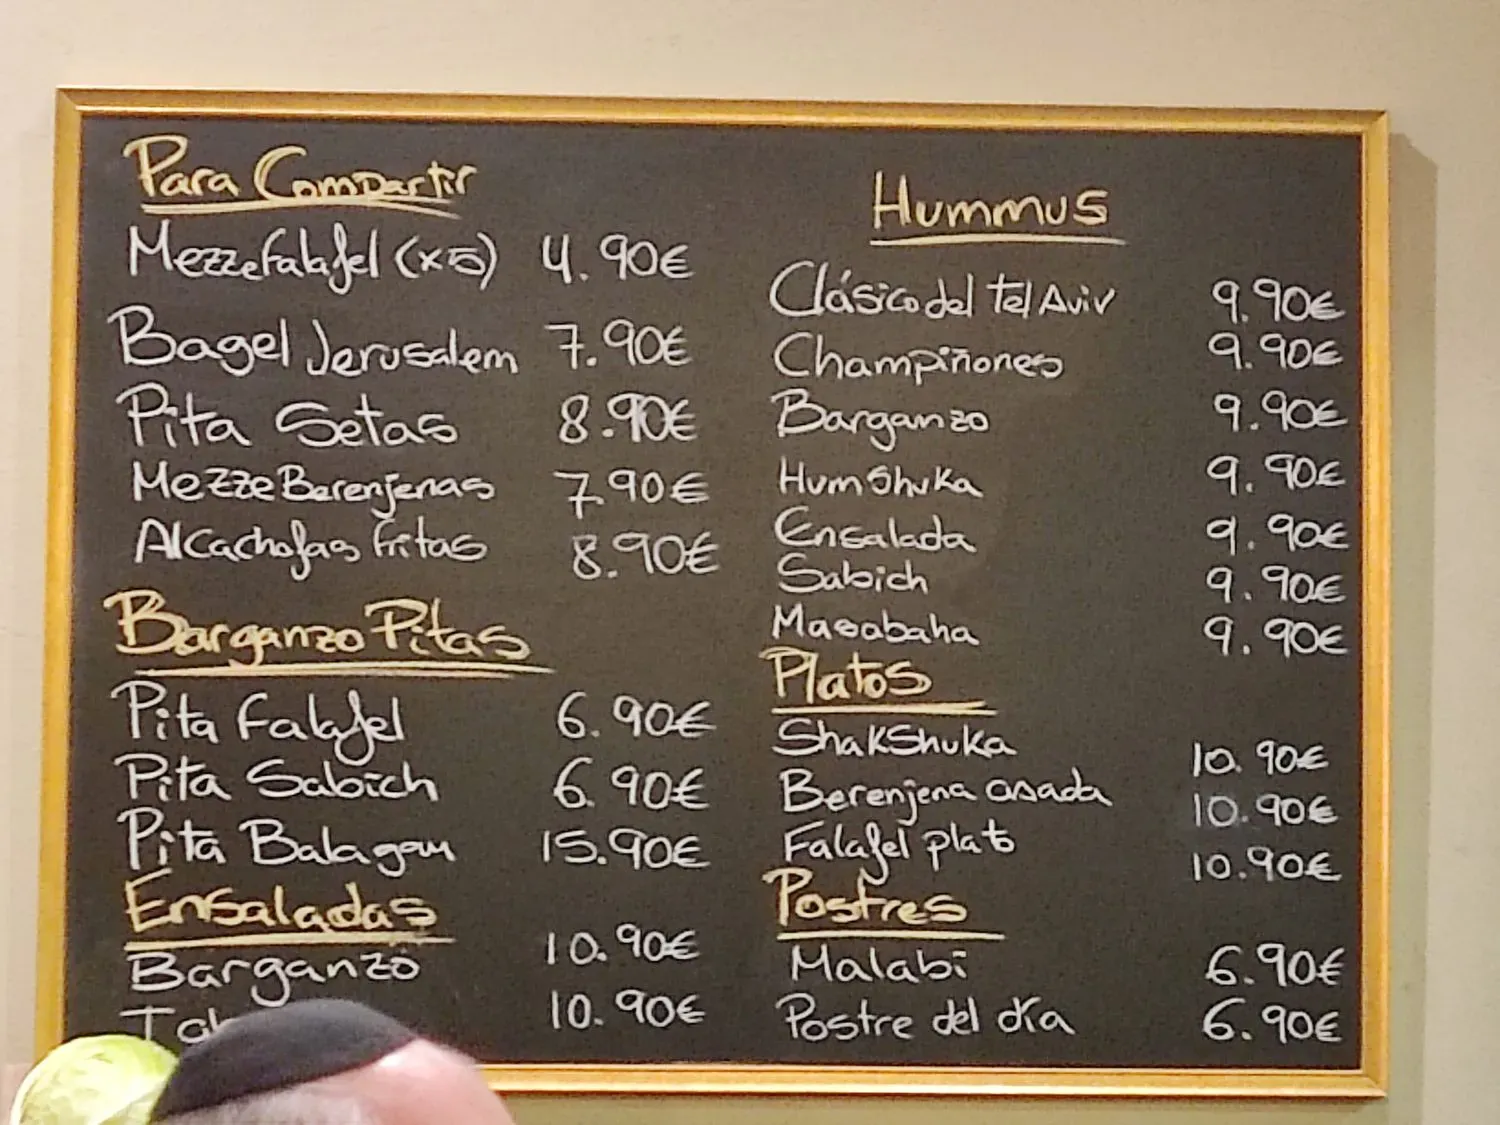 Para Compartir
Mezze Falafel (x5) 4.90€
Bagel Jerusalem 7.90€
Pita Setas 8.90€
Mezze Berenjenas 7.90€
Alcachofas Fritas 8.90€
Barganzo Pitas
Pita Falafel 6.90€
Pita Sabich 6.90€
Pita Balagan 15.90€
Ensaladas
Barganzo 10.90€
10.90€
Hummus
Clásico del Tel Aviv 9.90€
Champiñones 9.90€
Barganzo 9.90€
HumShuka 9.90€
Ensalada 9.90€
Sabich 9.90€
Masabaha 9.90€
Platos
ShakShuka 10.90€
Berenjena asada 10.90€
Falafel plato 10.90€
Postres
Malabi 6.90€
Postre del día 6.90€